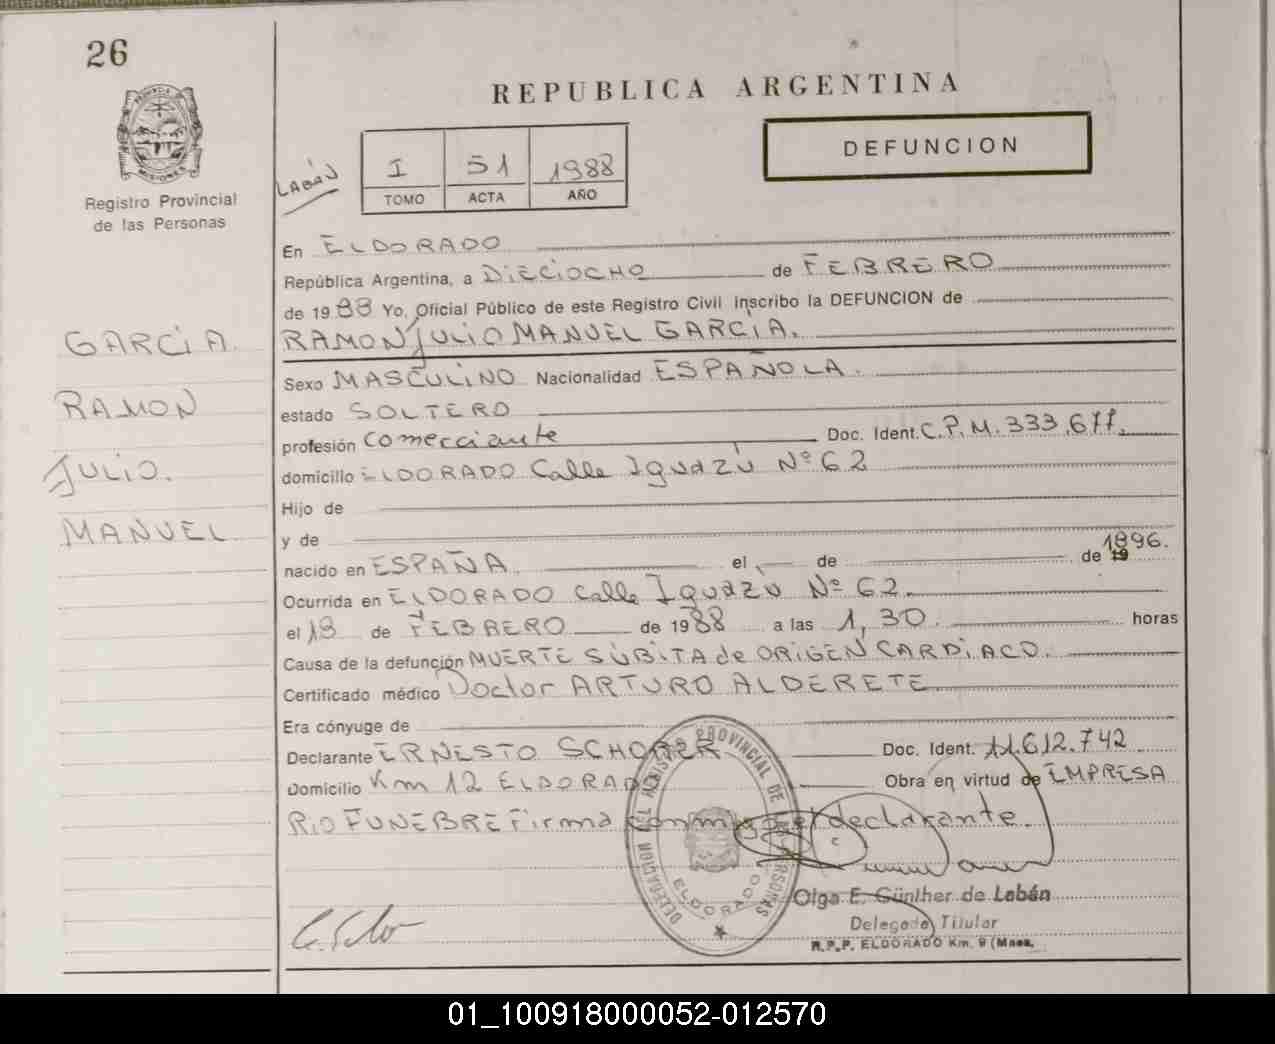 26
REPUBLICA ARGENTINA
DEFUNCION
LABAN
I 51 1988
TOMO ACTA AÑO
Registro Provincial
de las Personas
En ELDORADO
República Argentina, a DIECIOCHO de FEBRERO
de 1988 Yo, Oficial Público de este Registro Civil inscribo la DEFUNCION de
RAMON JULIO MANUEL GARCIA.
GARCIA.
RAMON
JULIO.
MANUEL
Sexo MASCULINO Nacionalidad ESPAÑOLA.
estado SOLTERO
profesión Comerciante Doc. Ident. C.P.M. 333.677.
domicilio ELDORADO Calle Iguazú Nº 62
Hijo de
y de
nacido en ESPAÑA. el de de 19 1896.
Ocurrida en ELDORADO Calle Iguazú Nº 62.
el 18 de FEBRERO de 1988 a las 1,30. horas
Causa de la defunción MUERTE SÚBITA de ORIGEN CARDIACO.
Certificado médico Doctor ARTURO ALDERETE
Era cónyuge de
Declarante ERNESTO Doc. Ident. 11.612.742
Domicilio Km 12 ELDORADO Obra en virtud de EMPRESA
RIO FUNEBRE Firma conmigo el declarante.
DELEGADO DEL REGISTRO PROVINCIAL DE LAS PERSONAS
ELDORADO
Olga E. Günther de Labán
Delegado Titular
R.P.P. ELDORADO Km. 9 (Mnes.
01_100918000052-012570